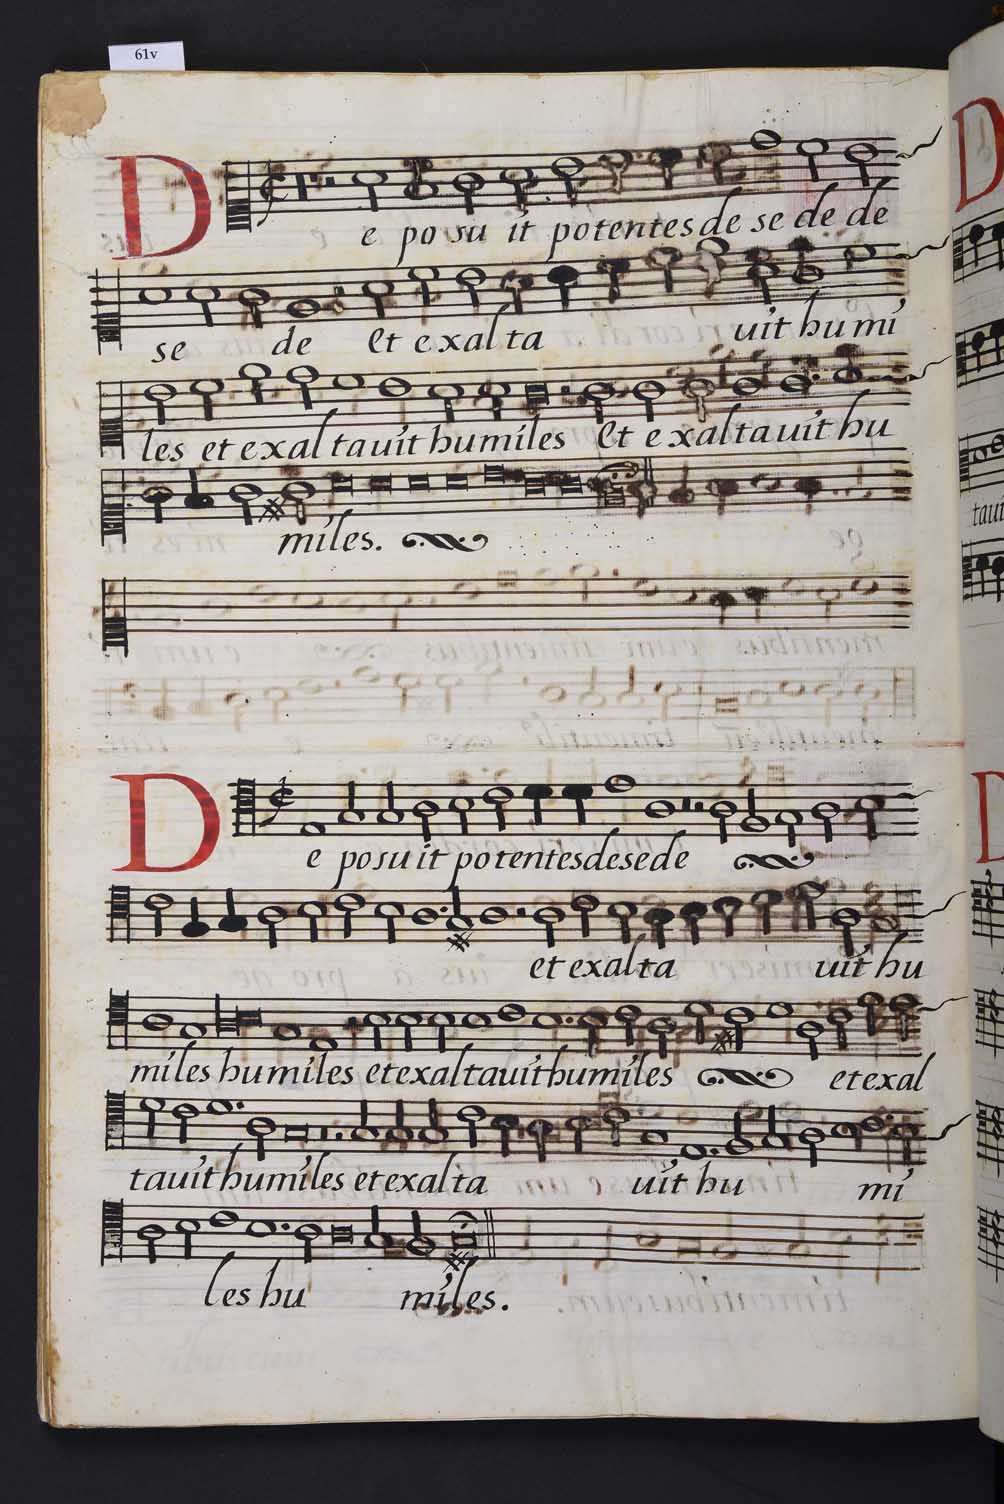 61v
De po su it potentes de se de de
se de et exal ta uit hu mi
les et exaltauit humiles Et exaltauit hu
miles.
De posuit potentes de sede
et exalta uit hu
miles humiles et exaltauit humiles et exal
tauit humiles et exalta uit hu mi
les hu miles.
D
taui
D